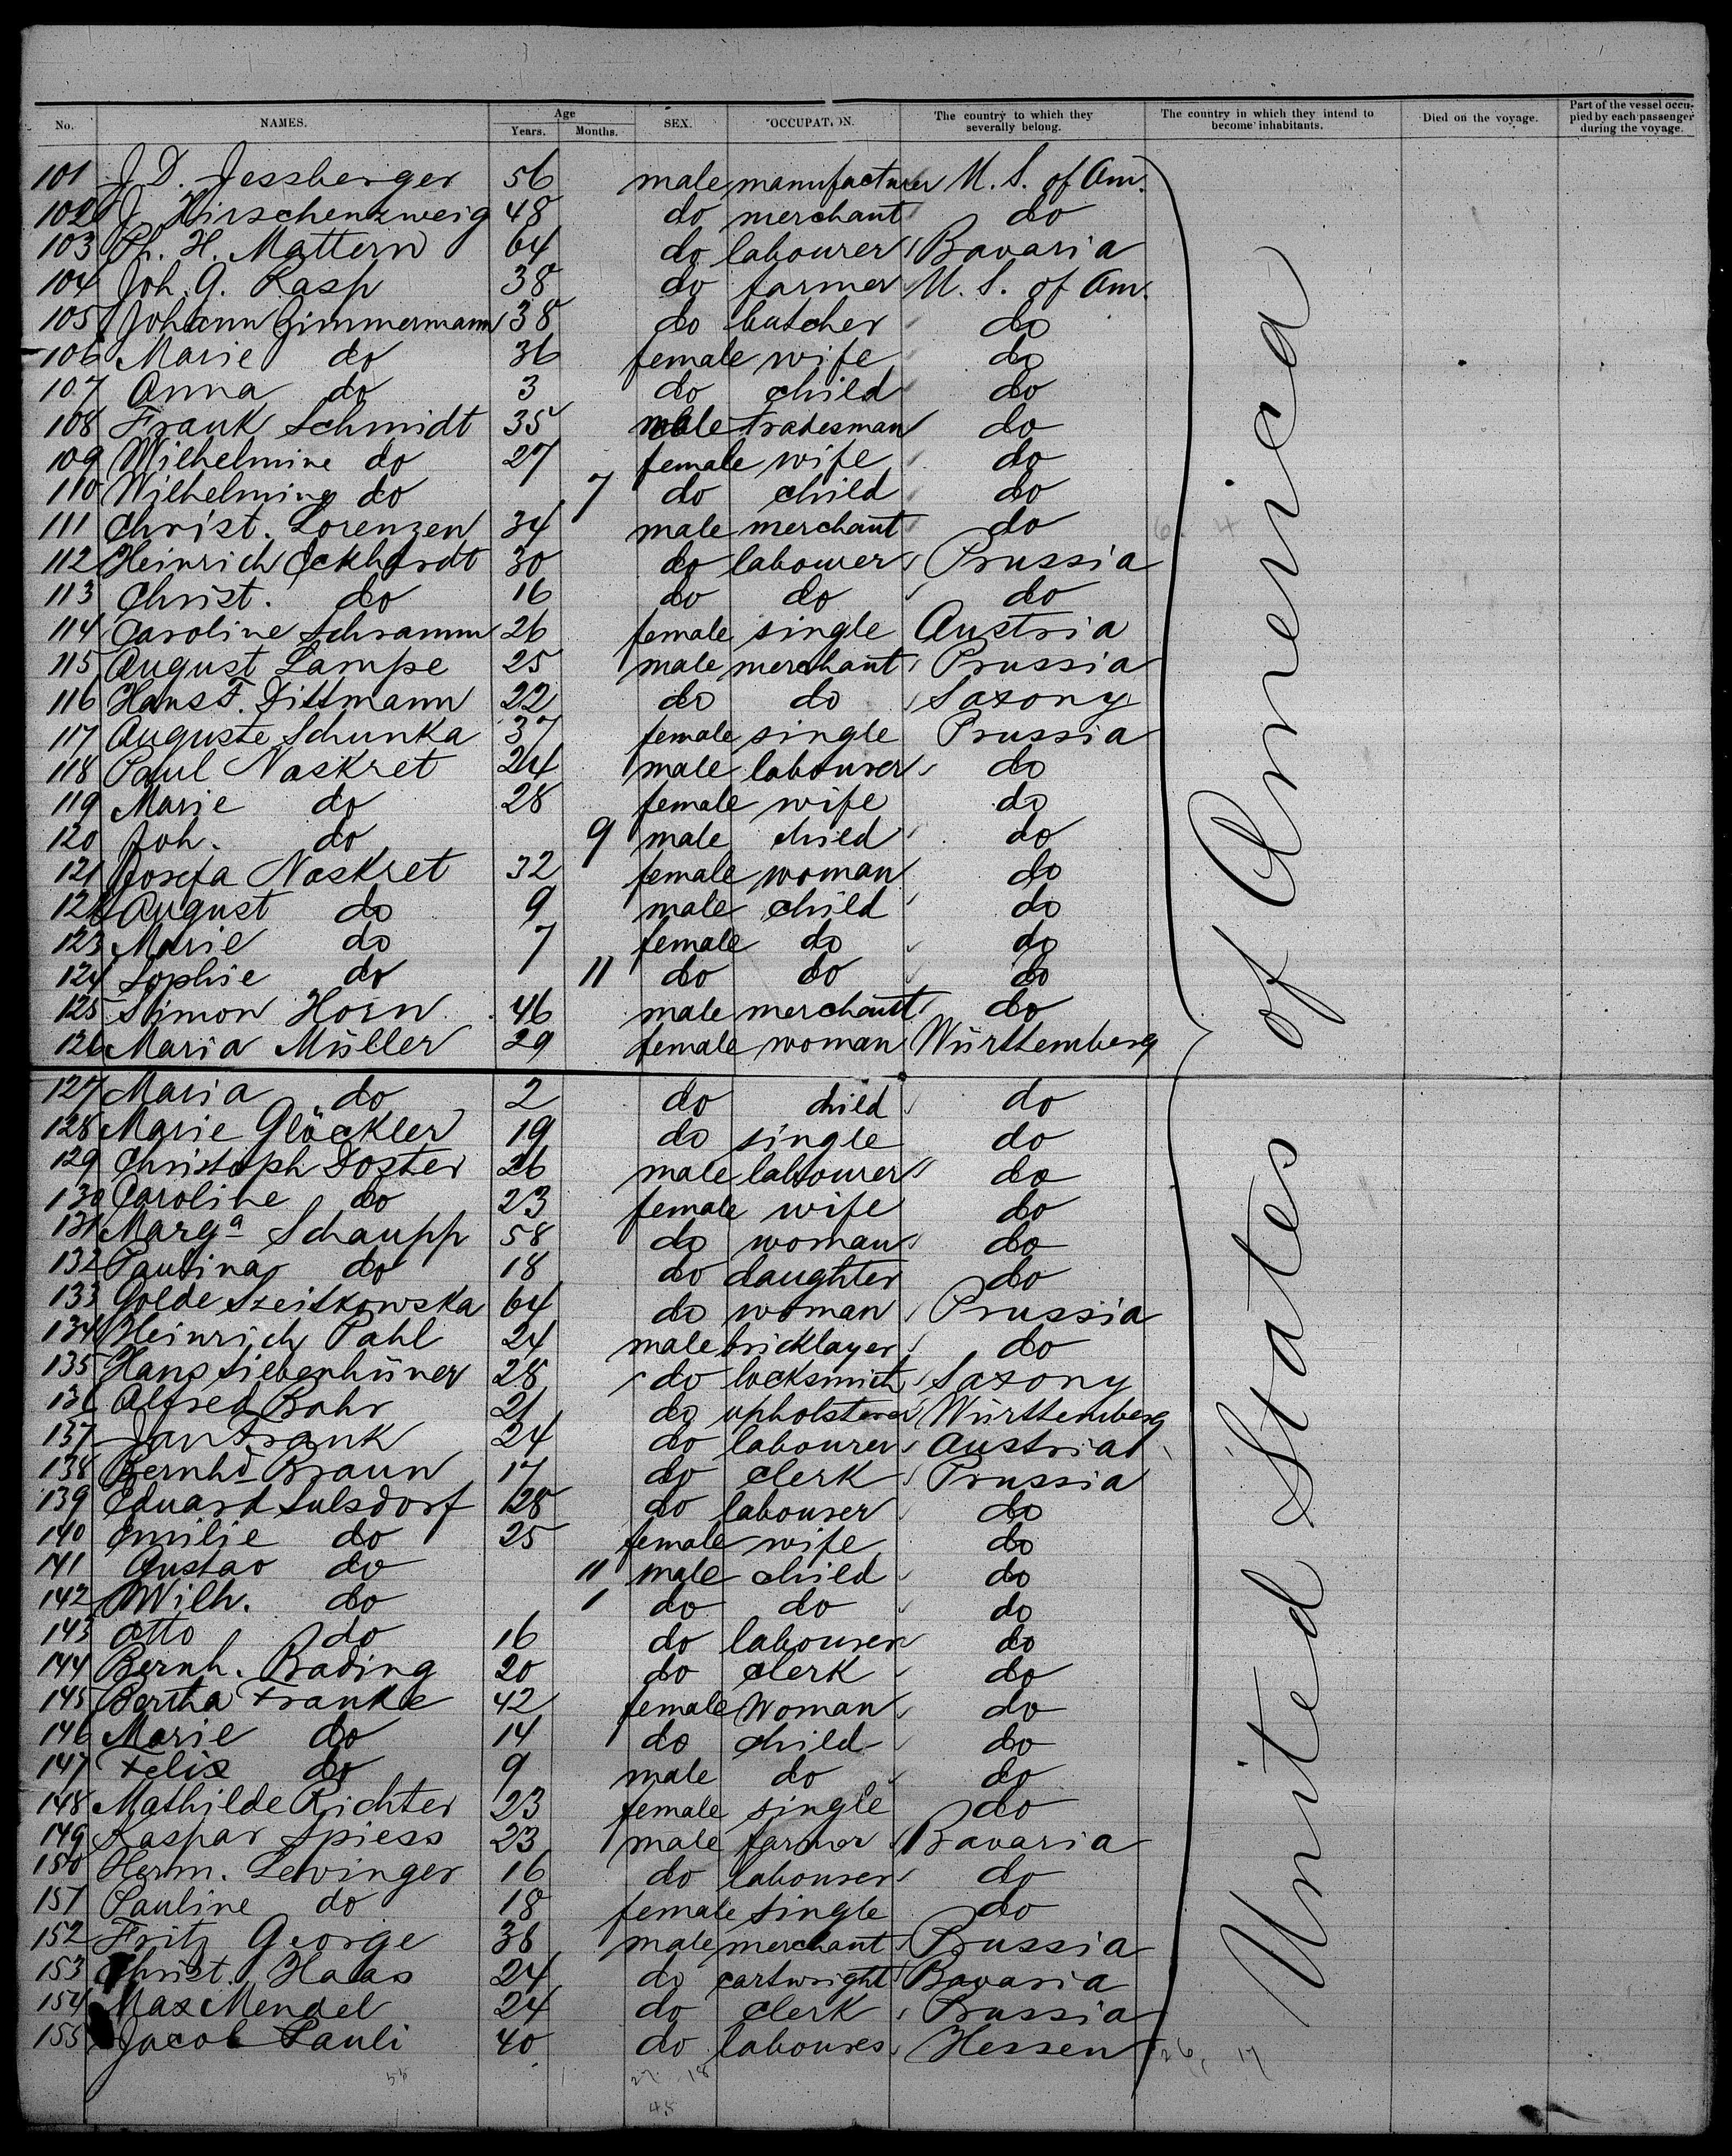 No. NAMES. Age Years. Months. SEX. OCCUPATION. The country to which they severally belong. The country in which they intend to become inhabitants. Died on the voyage. Part of the vessel occupied by each passenger during the voyage.
101 J. D. Jessberger 56 male manufacturer U. S. of Am.
102 J. Hirschenzweig 48 do merchant do
103 Ph. H. Mattern 64 do labourer Bavaria
104 Joh. G. Rasp 38 do farmer U. S. of Am.
105 Johann Zimmermann 38 do butcher do
106 Marie do 36 female wife do
107 Anna do 3 do child do
108 Frank Schmidt 35 male tradesman do
109 Wilhelmine do 27 female wife do
110 Wilhelmine do 7 do child do
111 Christ. Lorenzen 34 male merchant do
112 Heinrich Eckhardt 30 do labourer Prussia
113 Christ. do 16 do do do
114 Caroline Schramm 26 female single Austria
115 August Lampe 25 male merchant Prussia
116 Hans F. Dittmann 22 do do Saxony
117 Auguste Schunka 37 female single Prussia
118 Paul Naskret 24 male labourer do
119 Marie do 28 female wife do
120 Joh. do 9 male child do
121 Josefa Naskret 32 female woman do
122 August do 9 male child do
123 Marie do 7 female do do
124 Sophie do 11 do do do
125 Simon Horn 46 male merchant do
126 Maria Müller 29 female woman Württemberg
127 Maria do 2 do child do
128 Marie Glöckler 19 do single do
129 Christoph Doster 26 male labourer do
130 Caroline do 23 female wife do
131 Marga Schaupp 58 do woman do
132 Paulina do 18 do daughter do
133 Golde Szeitkowska 64 do woman Prussia
134 Heinrich Pahl 24 male bricklayer do
135 Hans Siebenhüner 28 do locksmith Saxony
136 Alfred Bahr 21 do upholsterer Württemberg
137 Jan Frank 24 do labourer Austria
138 Bernhd Braun 17 do clerk Prussia
139 Eduard Sulsdorf 28 do labourer do
140 Emilie do 25 female wife do
141 Gustav do 11 male child do
142 Wilh. do 1 do do do
143 Otto do 16 do labourer do
144 Bernh. Brading 20 do clerk do
145 Bertha Franke 42 female Woman do
146 Marie do 14 do child do
147 Felix do 9 male do do
148 Mathilde Richter 23 female single do
149 Kaspar Spiess 23 male farmer Bavaria
150 Herm. Lewinger 16 do labourer do
151 Pauline do 18 female single do
152 Fritz George 38 male merchant Prussia
153 Christ. Haas 24 do cartwright Bavaria
154 Max Mendel 24 do clerk Prussia
155 Jacob Pauli 40 do labourer Hessen
United States of America